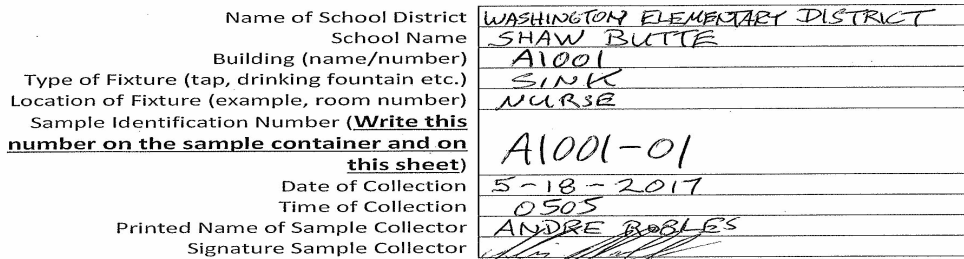 Name of School District WASHINGTON ELEMENTARY DISTRICT
School Name SHAW BUTTE
Building (name/number) A1001
Type of Fixture (tap, drinking fountain etc.) SINK
Location of Fixture (example, room number) NURSE
Sample Identification Number (Write this
number on the sample container and on
this sheet) A1001-01
Date of Collection 5-18-2017
Time of Collection 0505
Printed Name of Sample Collector ANDRE ROBLES
Signature Sample Collector